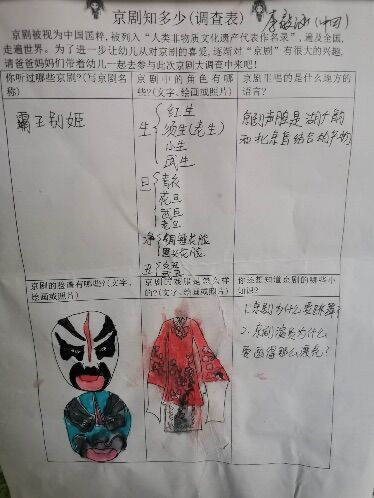 京剧知多少(调查表)
(中四)
京剧被视为中国国粹，被列入“人类非物质文化遗产代表作名录”，遍及全国，
走遍世界。为了进一步让幼儿从对京剧的喜爱，逐渐对“京剧”有很大的兴趣，
请爸爸妈妈们带着幼儿一起去参与此次京剧大调查中来吧!
你听过哪些京剧?(写京剧名
称)
霸王别姬
京剧中的角色有哪
些?(文字、绘画或照片)
生
红生
须生(老生)
小生
武生
旦
青衣
花旦
武旦
老旦
净
铜锤花脸
丑
京剧里唱的是什么地方的
语言?
京剧声腔是
和北京音结合的产物
京剧的脸谱有哪些?(文字、
绘画或照片)
京剧的戏服是怎么样
的?(文字、绘画或照片)
你还想知道京剧的哪些小
知识?
1.京剧为什么要
2.京剧演员为什么
要画得那么漂亮?